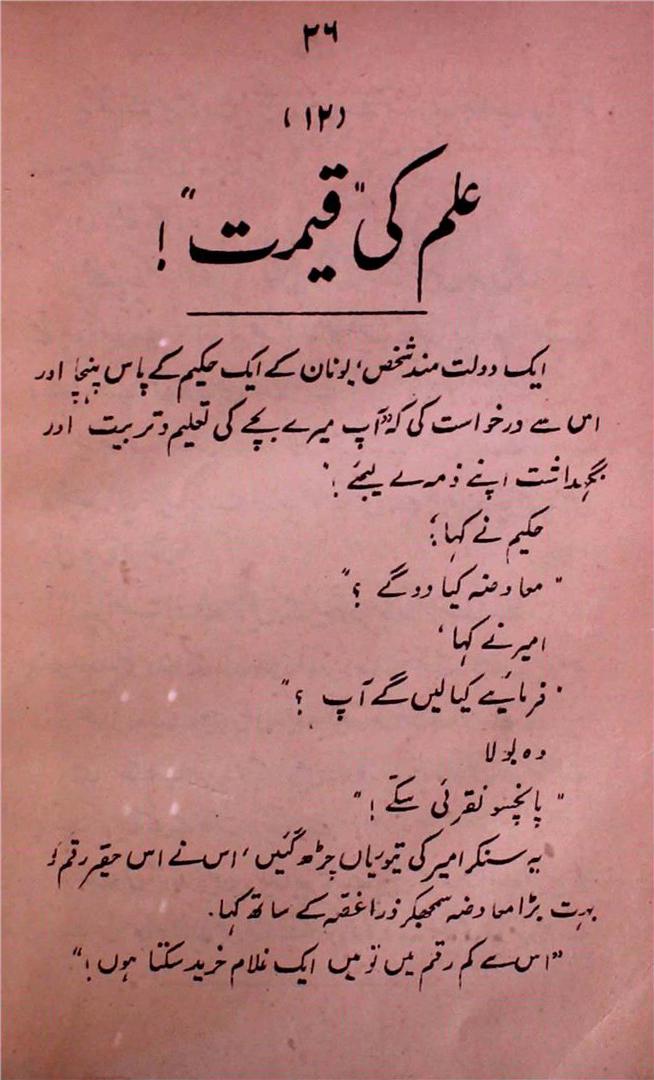 ۳۶
(۱۲)
علم کی "قیمت"!
ایک دولت مند شخص، یونان کے ایک حکیم کے پاس پہنچا اور
اس سے درخواست کی کہ "آپ میرے بچے کی تعلیم و تربیت اور
نگہداشت اپنے ذمہ لے لیجئے!"
حکیم نے کہا:
"معاوضہ کیا دو گے ؟"
امیر نے کہا،
"فرمایئے کیا لیں گے آپ ؟"
وہ بولا
"پانچسو نقرئی سکے!"
یہ سنکر امیر کی تیوریاں چڑھ گئیں، اس نے اس حقیر رقم کو
بہت بڑا معاوضہ سمجھکر ذرا غصّہ کے ساتھ کہا۔
"اس سے کم رقم میں تو میں ایک غلام خرید سکتا ہوں!"